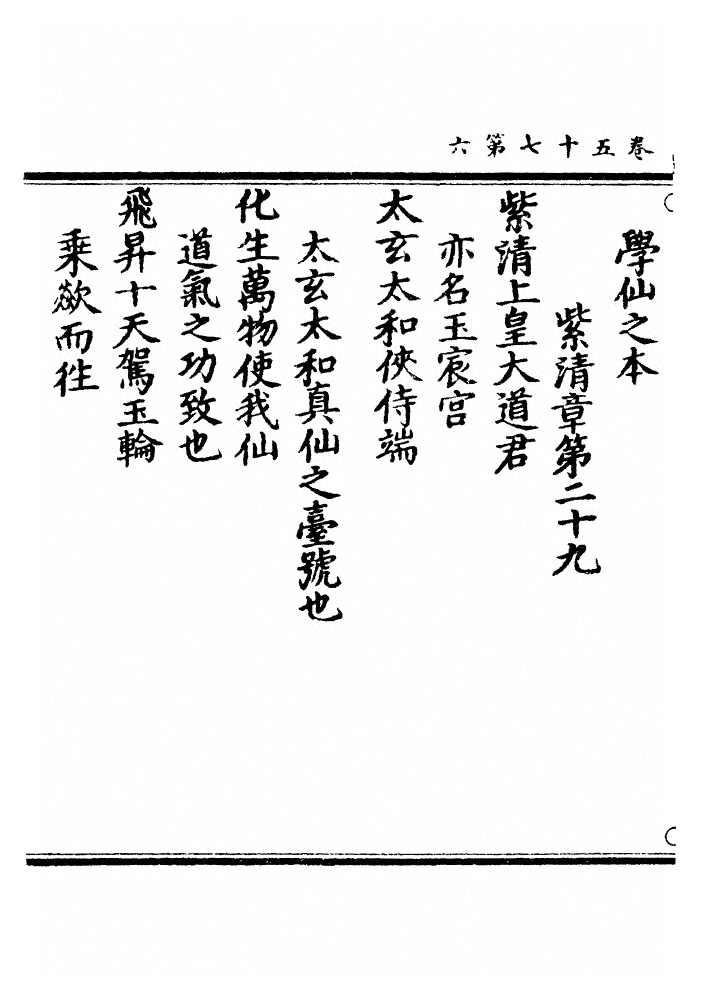 卷五十七第六
學仙之本
紫清章第二十九
紫清上皇大道君
亦名玉宸宫
太玄太和俠侍端
太玄太和真仙之臺號也
化生萬物使我仙
道氣之功致也
飛昇十天駕玉輪
乗歘而徃